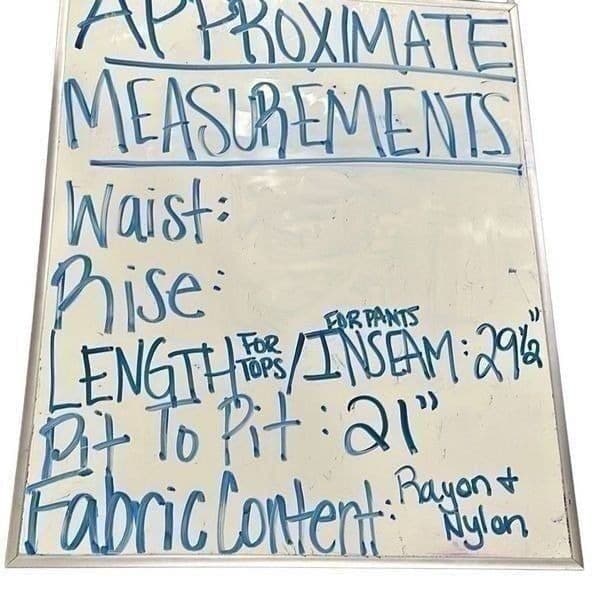 APPROXIMATE
MEASUREMENTS
Waist:
Rise:
LENGTH FOR TOPS / INSEAM FOR PANTS: 29½"
Pit To Pit: 21"
Fabric Content: Rayon + Nylon